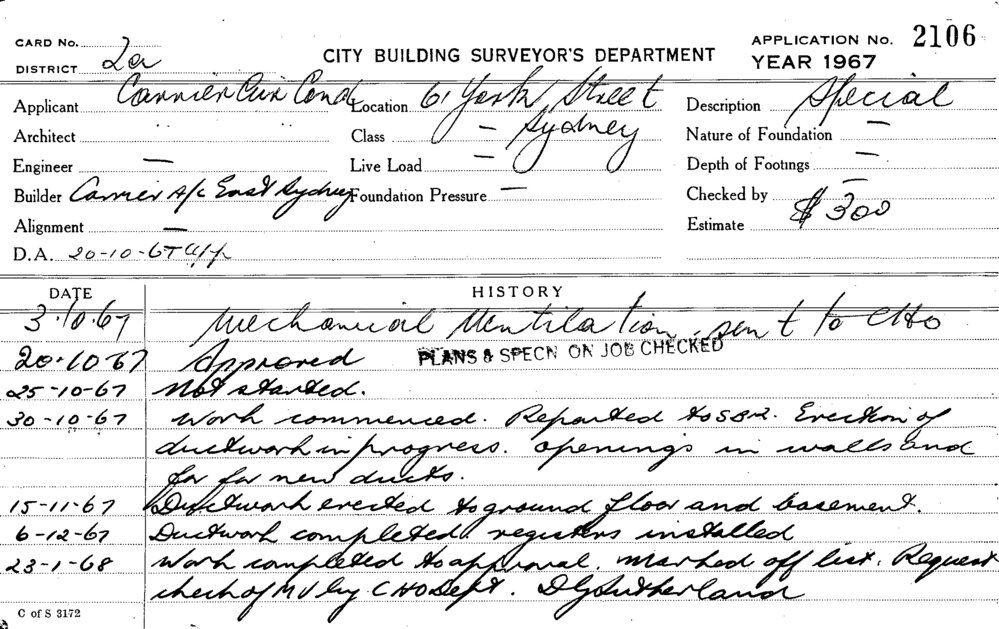 CARD No.
CITY BUILDING SURVEYOR'S DEPARTMENT
APPLICATION No. 2106
DISTRICT 2a
YEAR 1967
Applicant Carrier Air Cond Location 61 York Street Description Special
Architect Class — Sydney Nature of Foundation —
Engineer — Live Load — Depth of Footings —
Builder Carrier A/c East Sydney Foundation Pressure — Checked by —
Alignment — Estimate $300
D.A. 20-10-67 app
DATE HISTORY
3.10.67 Mechanical Ventilation. sent to CHO
20.10.67 Approved PLANS & SPECN ON JOB CHECKED
25-10-67 Not started.
30-10-67 Work commenced. Reported to SBR. Erection of
ductwork in progress. Openings in walls and
for for new ducts.
15-11-67 Ductwork erected to ground floor and basement.
6-12-67 Ductwork completed registers installed
23-1-68 Work completed to approval. Marked off list. Request
check of MV by CHO Dept. DG Sutherland
C of S 3172